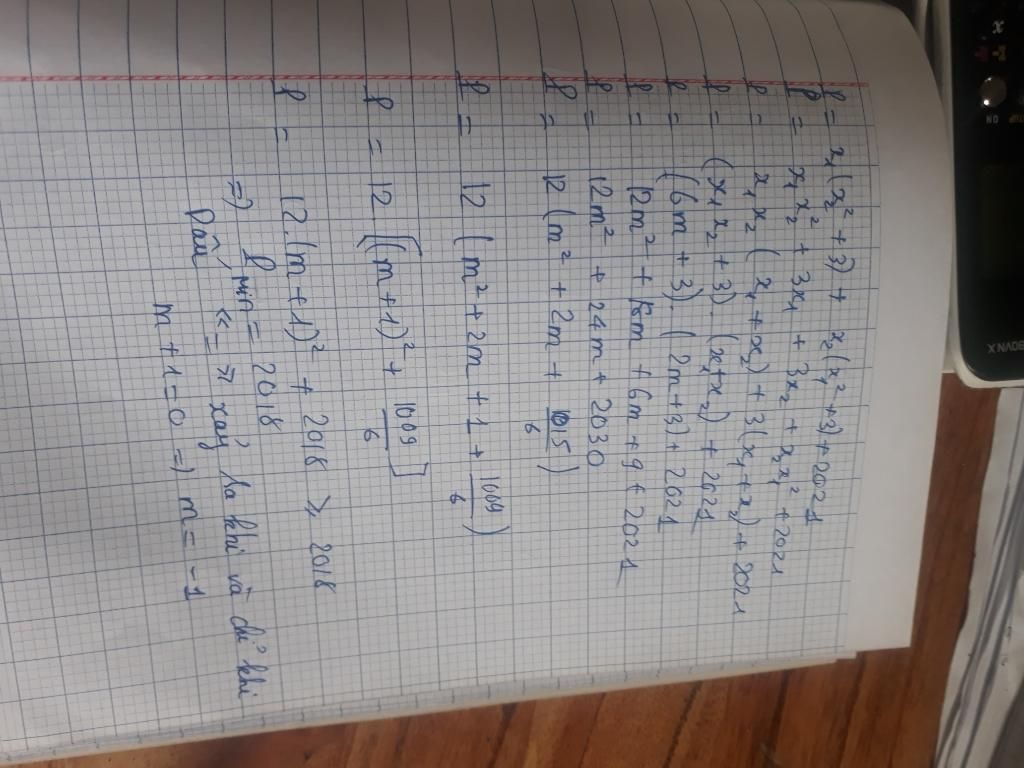 P = x₁(x₂² + 3) + x₂(x₁² + 3) + 2021
P = x₁x₂² + 3x₁ + 3x₂ + x₂x₁² + 2021
P = x₁x₂ (x₁ + x₂) + 3(x₁ + x₂) + 2021
P = (x₁x₂ + 3).(x₁ + x₂) + 2021
P = (6m + 3).(2m + 3) + 2021
P = 12m² + 18m + 6m + 9 + 2021
P = 12m² + 24m + 2030
P = 12 (m² + 2m + 1015/6)
P = 12 (m² + 2m + 1 + 1009/6)
P = 12 [(m + 1)² + 1009/6]
P = 12.(m + 1)² + 2018 ≥ 2018
=) P min = 2018
Dấu « = » xảy ra khi và chỉ khi
m + 1 = 0 =) m = -1